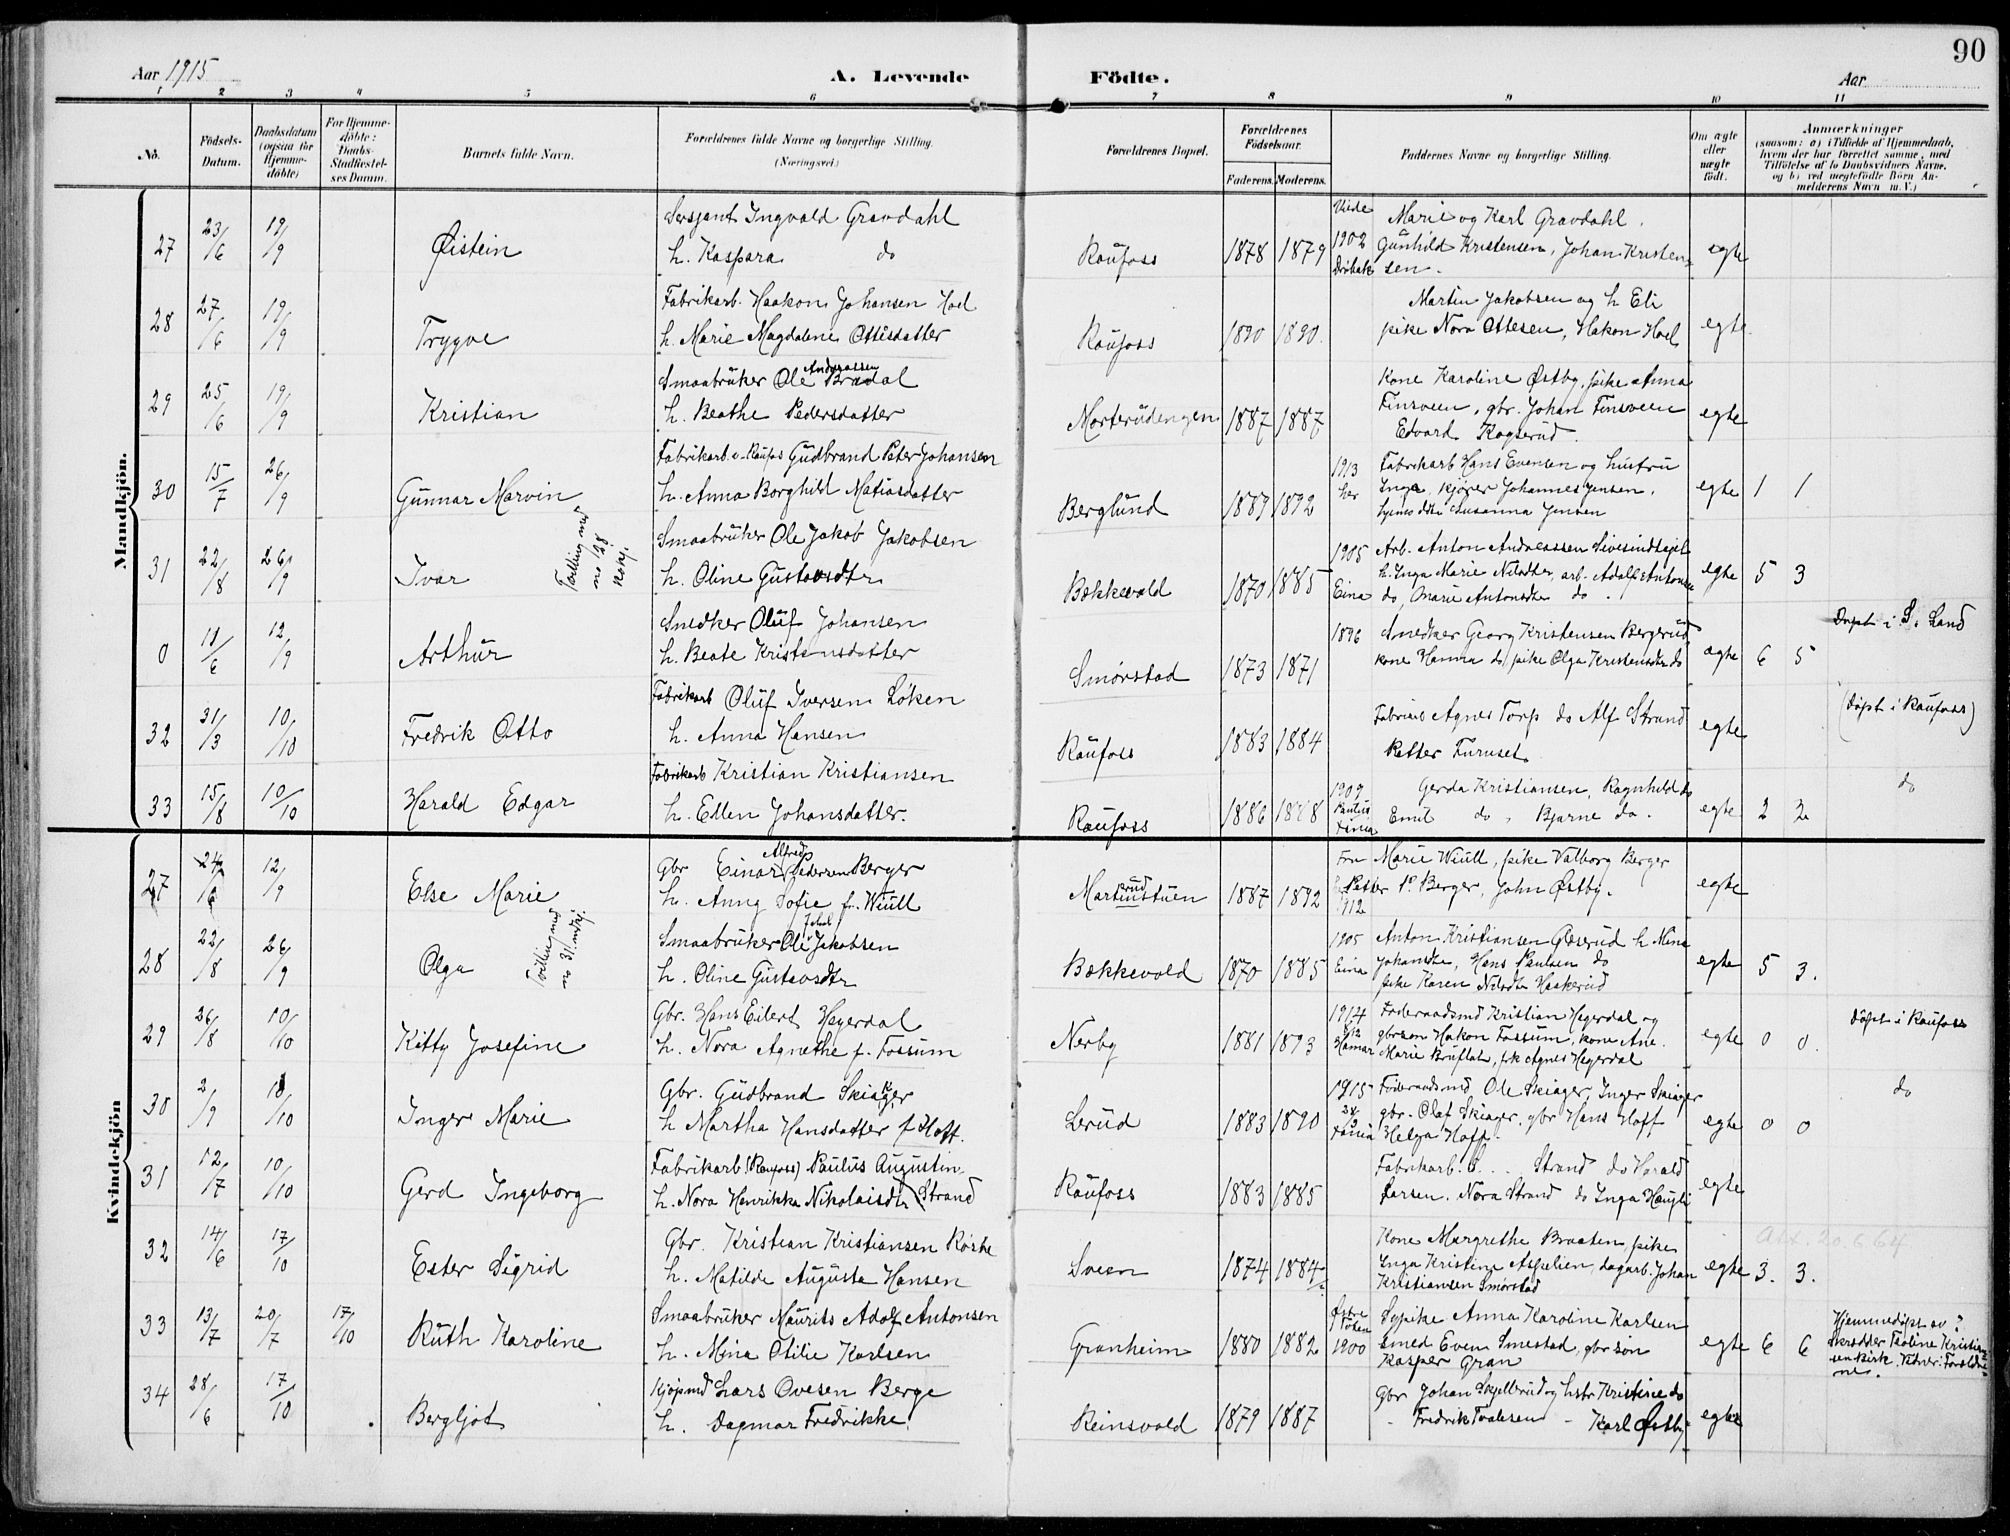 90
Aar 1915
A. Levende Födte.
Aar
1 2 3 4 5 6 7 8 9 10 11
No.
Födsels-Datum.
Daabsdatum (ogsaa for Hjemme-döbte)
For Hjemme-döbte: Daabs-Stadfæstel-ses Datum.
Barnets fulde Navn.
Forældrenes fulde Navne og borgerlige Stilling. (Næringsvei.)
Forældrenes Bopæl.
Forældrenes Födselsaar.
Faderens. Moderens.
Faddernes Navne og borgerlige Stilling.
Om ægte eller uægte födt.
Anmærkninger
(saasom: a) i Tilfælde af Hjemmedaab, hvem der har forrettet samme, med Tilföielse af to Daabsvidners Navne. og b) ved uægtefödte Börn An-melderens Navn m. V.)
Mandkjön.
27 23/6 19/9 Øistein
Sersjant Ingvald Gravdahl
h. Kaspara do
Raufoss 1878 1879
Viede 1902 Drøbak
Marie og Karl Gravdahl.
Gunhild Kristensen, Johan Kristen-
sen.
egte
28 27/6 19/9 Trygve
Fabrikarb. Haakon Johansen Hoel
h. Marie Magdalene Ottisdatter
Raufoss 1890 1890.
Martin Jakobsen og h. Eli
pike Nora Ottesen, Hakon Hoel
egte
29 25/6 19/9 Kristian
Smaabruker Ole Andreassen Bradal
h. Beathe Pedersdatter
Morterudengen 1887 1887
Kone Karoline Østby, pike Anna
Finsveen, gbr. Johan Finsveen
Edvard Kogserud.
egte
30 15/7 26/9 Gunnar Marvin
Fabrikarb. v. Raufos Gudbrand Peter Johansen
h. Anna Borghild Matiasdatter
Berglund 1889 1892
1913 her
Fabrikarb Hans Evensen og hustru
Inga, kjører Johannes Jensen,
Susanna Jensen
egte 1 1
31 22/8 26/9 Ivar
Tvilling med no 28 kvkj.
Smaabruker Ole Jakob Jakobsen
h. Oline Gustavsdtr
Bækkevold 1870 1885
1905 Eina
Arb. Anton Andreassen
h. Inga Marie Nilsdtr, arb. Adolf Antonsen
do, Marie Antonsdtr do.
egte 5 3
0 18/6 12/9 Arthur
Snedker Oluf Johansen
h. Beate Kristensdatter
Smørstad 1873 1871
1896
Snedker Georg Kristensen Bergerud
kone Hanna do, pike Olga Kristensdtr do
ægte 6 5
Døpt i S. Land
32 31/3 10/10 Fredrik Otto
Fabrikarb Oluf Iversen Løken
h. Anna Hansen
Raufoss 1883 1884
Agnes Torp do Alf Strand
Petter Furuset
egte
(Døpt i Raufoss)
33 15/8 10/10 Harald Edgar
Fabrikarb Kristian Kristiansen
h. Edlen Johansdatter.
Raufoss 1886 1888
1909
Gerda Kristiansen, Ragnhild do
Emil do, Bjarne do.
egte 2 2
do
Kvindekjön
27 24/6 12/9 Else Marie
Gbr Einar Alfred Pedersen Berger
h. Anny Sofie f. Wiull
Marterudstuen 1887 1892
1912
Fru Marie Wiull, pike Valborg Berger
Petter P. Berger, John Østby.
egte
28 22/8 26/9 Olga
Tvilling med no 31. mdkj.
Smaabruker Ole Jakob Jakobsen
h. Oline Gustavsdtr
Bækkevold 1870 1885
1905 Eina
Anton Kristiansen Glæserud h. Mina
Johansdtr, Hans Paulsen do
pike Karen Nilsdtr Haakerud
egte 5 3.
29 26/8 10/10 Kitty Josefine
Gbr. Hans Eilert Hegerdal
h. Nora Agnethe f. Fossum
Nerby 1881 1893
1914 Hamar
Føderaadsmd Kristian Hegerdal og
gbrsøn Hakon Fossum, kone Ane
Marie Bruflat, pk Agnes Hegerdal
egte 0 0.
Døpt i Raufoss
30 2/9 10/10 Inger Marie
Gbr. Gudbrand Skiager
h Martha Hansdatter f. Hoff.
Lerud 1883 1890
1915
Føderaadsmd Ole Skiager, Inger Skiager
gbr. Olaf Skiager, gbr Hans Hoff
Helga Hoff.
egte 0 0
do
31 12/7 10/10 Gerd Ingeborg
Fabrikarb. (Raufoss) Paulus Augustin
h. Nora Henrikka Nikolaisdtr Strand
Raufoss 1883 1885
Fabrikarb. Strand do Harald
Larsen, Nora Strand do Inga Haugli
egte
32 14/6 17/10 Ester Sigrid
Gbr. Kristian Kristiansen Røste
h. Matilde Augusta Hansen
Sveen 1874 1884
Kone Margrethe Braaten, pike
Inga Kristine Asjelien, dagarb. Johan
Kristiansen Smørstad
egte 3. 3.
Att. 20.6.64
33 13/7 20/7 17/10 Ruth Karoline
Smaabruker Maurits Adolf Antonsen
h. Mina Otilie Karlsen
Granheim 1880 1882
Østre Toten 1900
Sypike Anna Karoline Karlsen
Smed Even Smestad, gbrsøn
Kasper Gran
egte 6 6
Hjemmedøpt av
34 28/6 17/10 Bergljot
Kjøpmd Lars Ovesen Berge
h. Dagmar Fredrikke
Reinsvold 1879 1887
Gbr Johan Skjelbrud og hstr Kristine do
- Fredrik Tvalesen - Karl Østby
egte